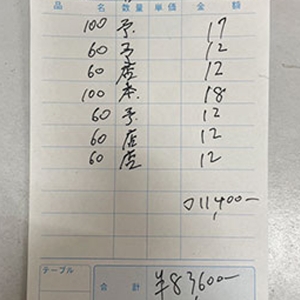 品名 数量 単価 金額
100 予 17
60 予 12
60 店 12
100 本 18
60 予 12
60 店 12
60 店 12
11,400-
テーブル
合計 ¥83,600-